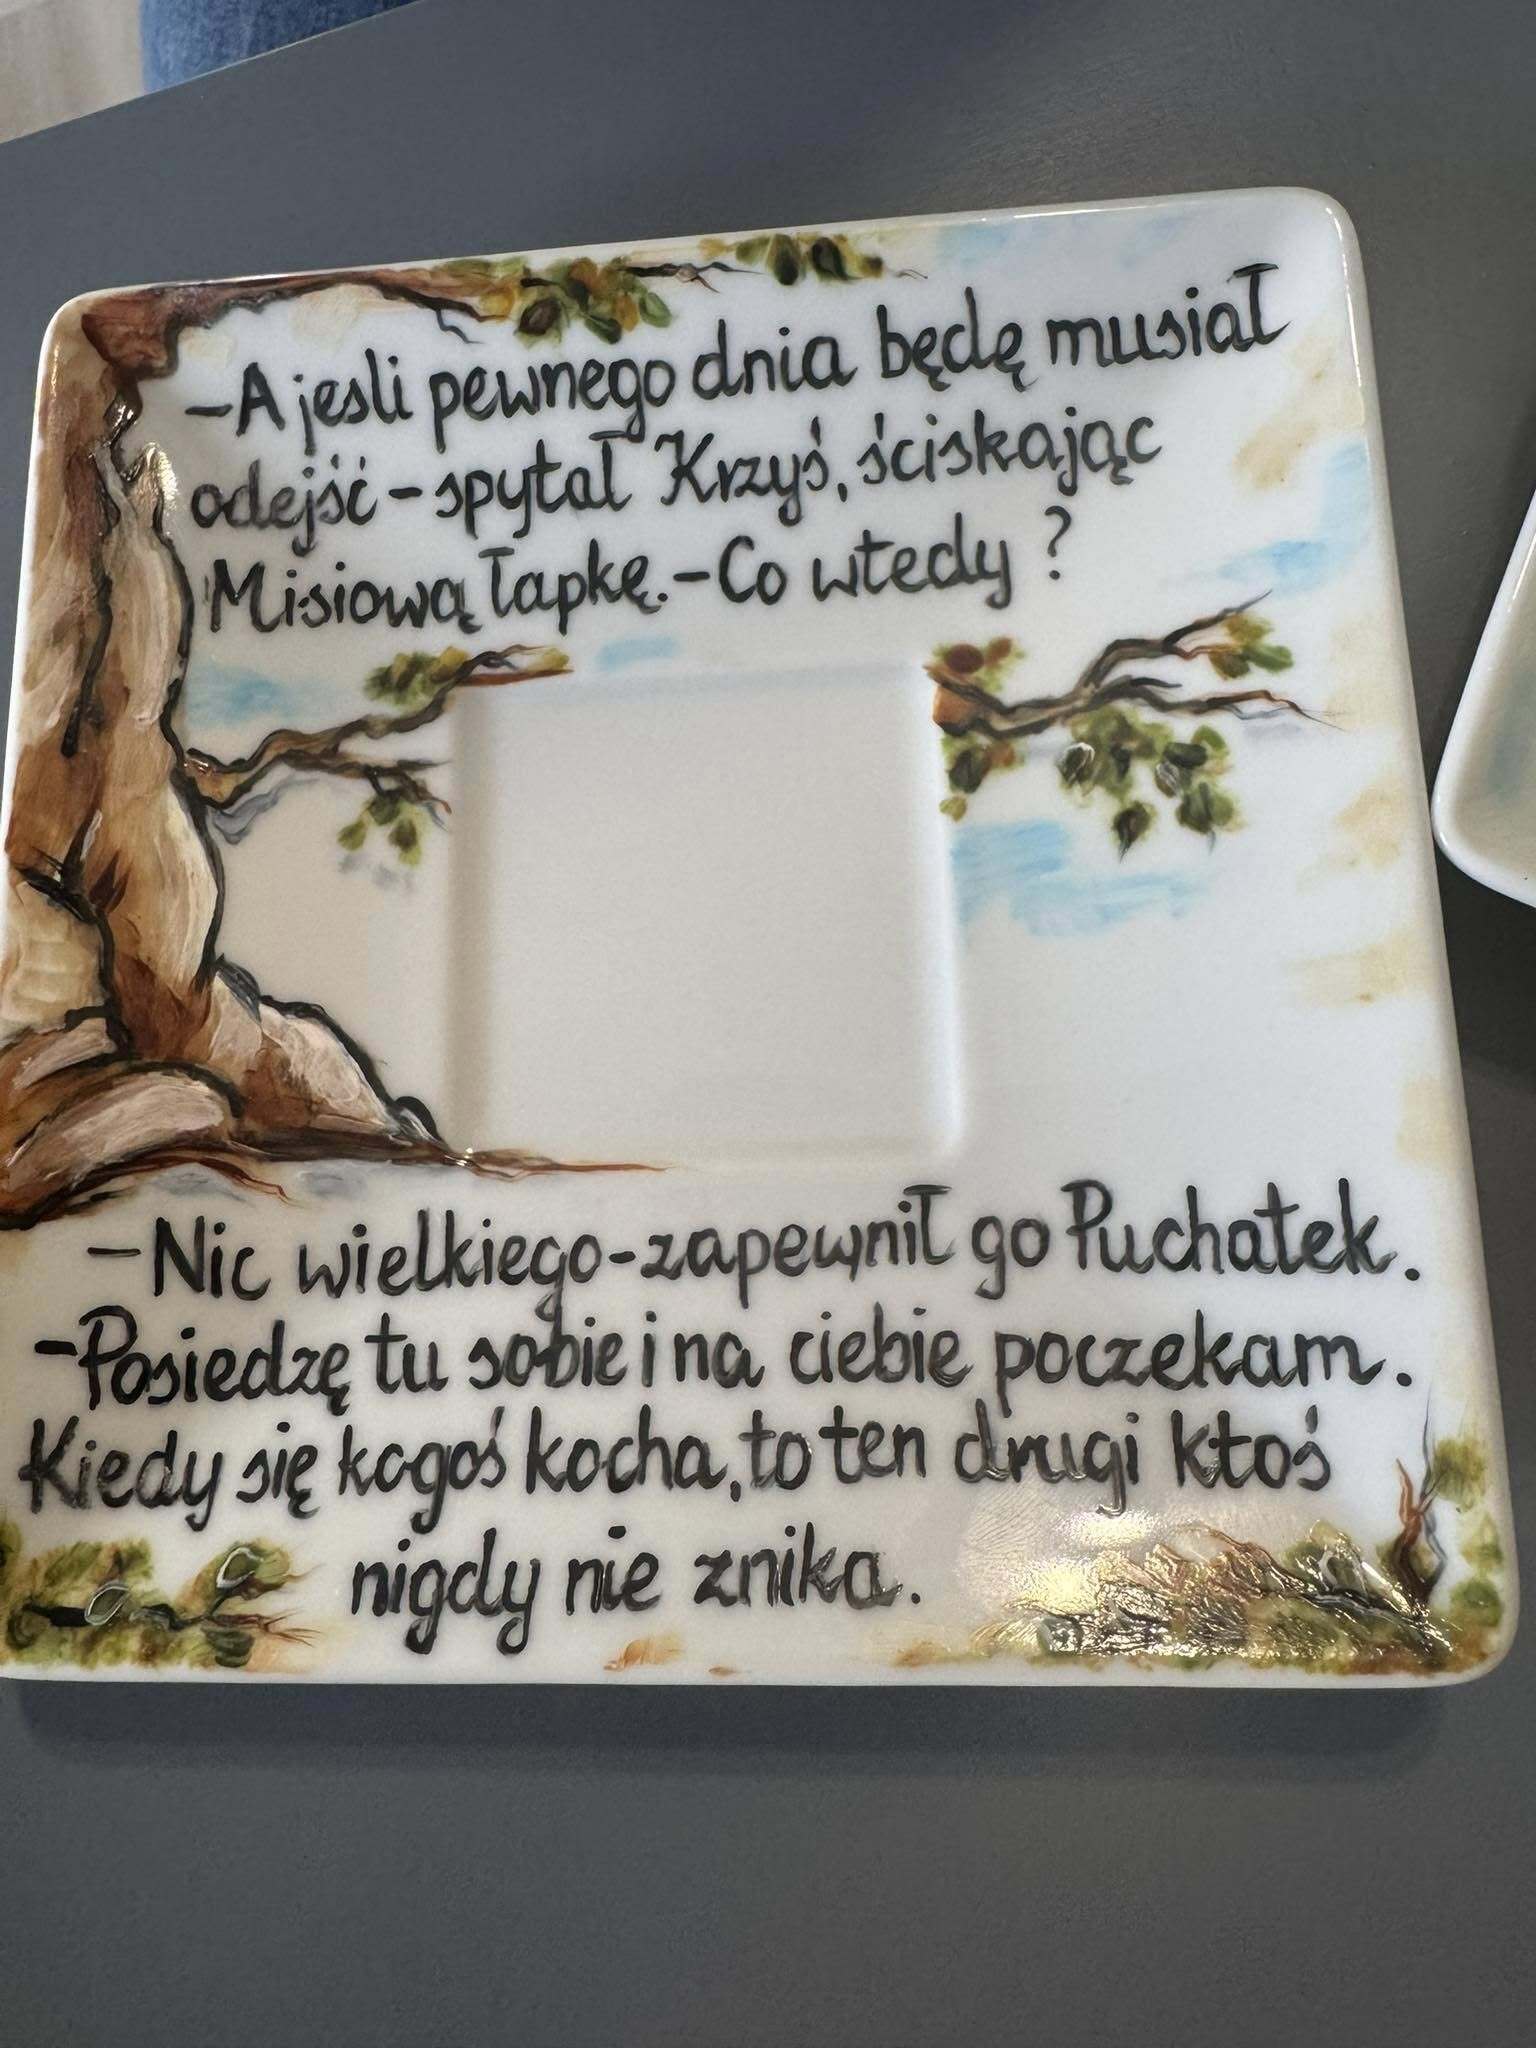 -A jesli pewnego dnia będę musiał
odejść - spytał Krzyś, ściskając
Misiową łapkę. - Co wtedy ?
- Nic wielkiego - zapewnił go Puchatek.
- Posiedzę tu sobie i na ciebie poczekam.
Kiedy się kogoś kocha, to ten drugi ktoś
nigdy nie znika.